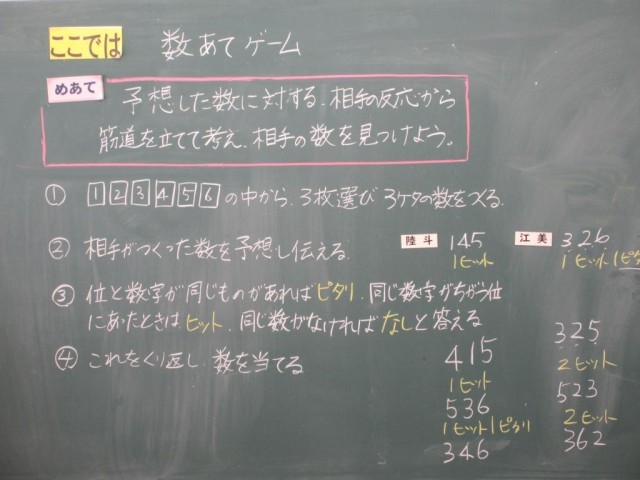 ここでは 数あてゲーム
めあて
予想した数に対する、相手の反応から
筋道を立てて考え、相手の数を見つけよう。
① 1 2 3 4 5 6 の中から、3枚選び3ケタの数をつくる。
② 相手がつくった数を予想し伝える。
③ 位と数字が同じものがあればピタリ、同じ数字がちがう位
にあったときはヒット、同じ数がなければなしと答える
④ これをくり返し、数を当てる
陸斗 145
1ヒット
415
1ヒット
536
1ヒット1ピタリ
346
江美 326
1ヒット1ピタ
325
2ヒット
523
2ヒット
362